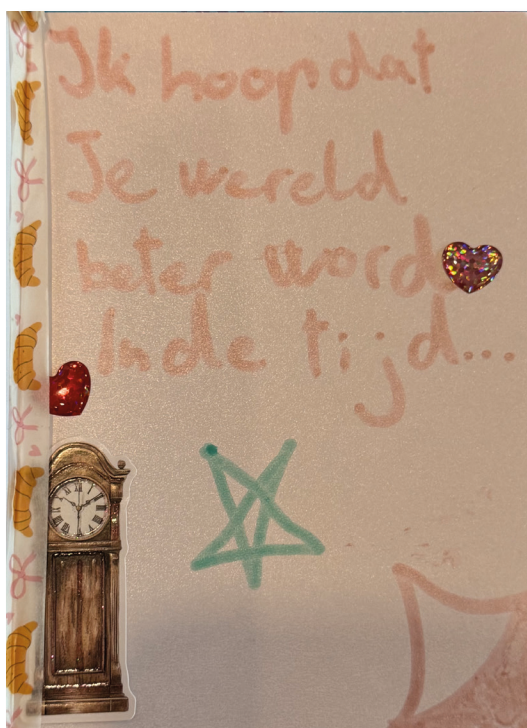 Ik hoop dat
Je wereld
beter word
In de tijd...